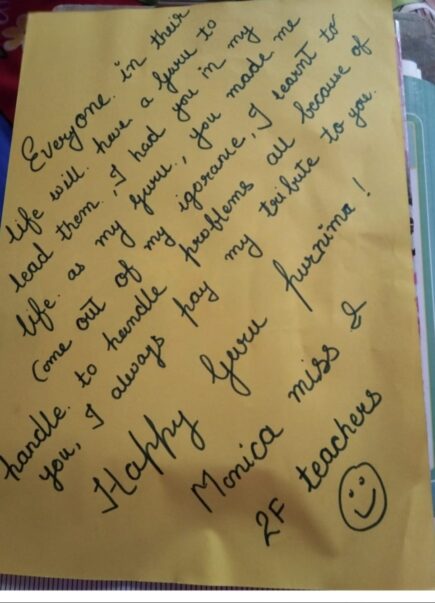 Everyone. in their
life will. have. a Guru to
lead them., I had you in my
life. as my Guru., you made me
come out of my igorance, I learnt to
handle. to handle problems all because of
you, I always pay my tribute to you.
Happy Guru purnima!
Monica miss &
2F teachers